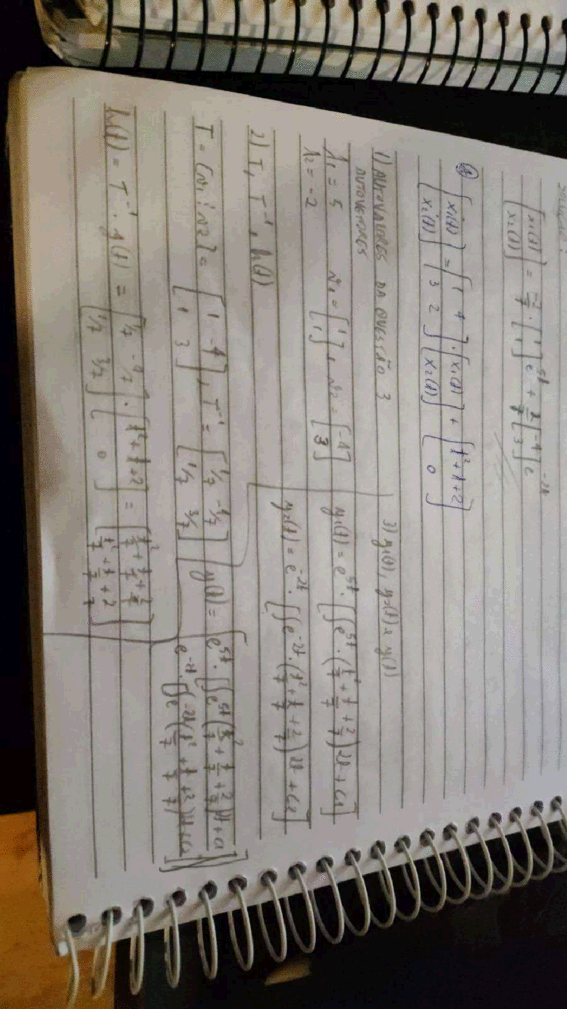 [x1(t) x2(t)] = -2/7 · [1 1] e^5t + 2/7 [-4 3] e^-2t
④ [x1'(t) x2'(t)] = [1 4 3 2] · [x1(t) x2(t)] + [t² + t + 2 0]
1) AUTOVALORES DA QUESTÃO 3
AUTOVETORES
λ1 = 5 v1 = [1 1], v2 = [-4 3]
λ2 = -2
2) T, T^-1, h(t)
T = [v1 ¦ v2] = [1 -4 1 3], T^-1 = [1/7 -4/7 1/7 3/7]
h(t) = T^-1 · g(t) = [1/7 -4/7 1/7 3/7] · [t² + t + 2 0] = [t²/7 + t/7 + 2/7 t²/7 + t/7 + 2/7]
3) y1(t), y2(t) e y(t)
y1(t) = e^5t · [∫ e^5t · (t²/7 + t/7 + 2/7) dt + c1]
y2(t) = e^-2t · [∫ e^-2t · (t²/7 + t/7 + 2/7) dt + c2]
y(t) = [e^5t · [∫ e^5t (t²/7 + t/7 + 2/7) dt + c1] e^-2t · [∫ e^-2t (t²/7 + t/7 + 2/7) dt + c2]]